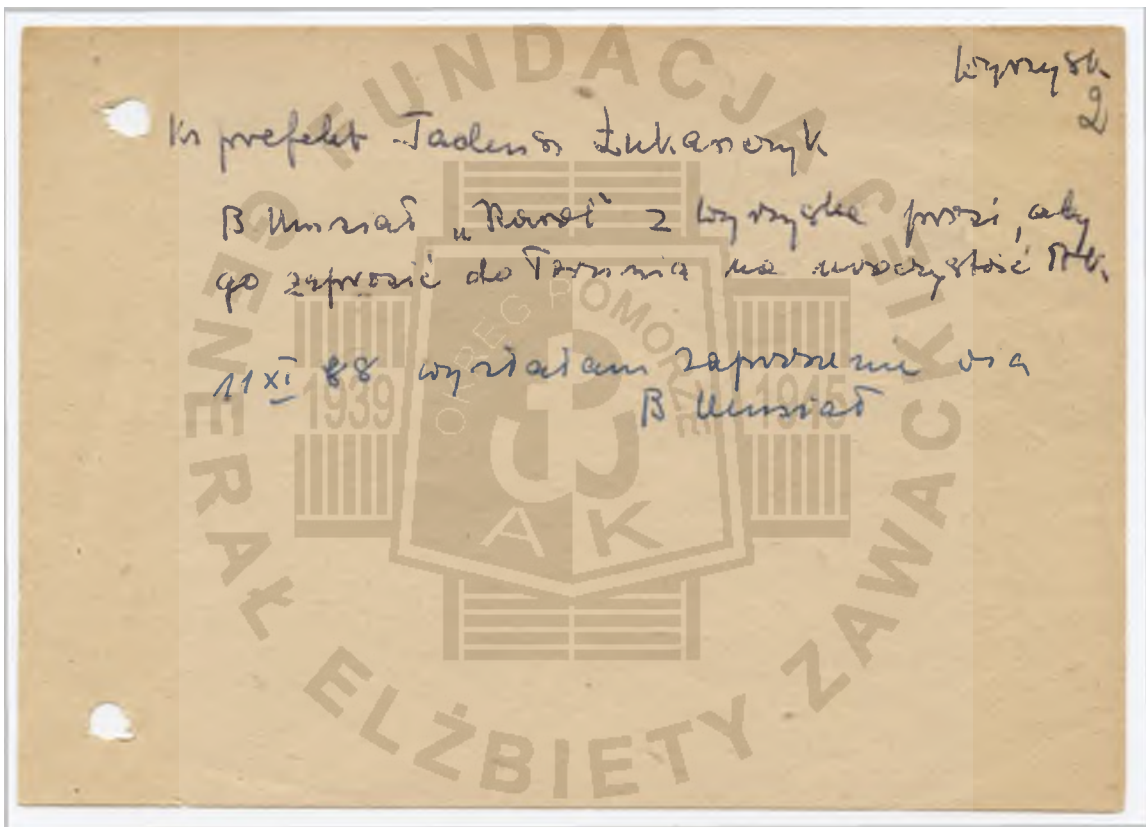 Wyrzysk
2
Ks prefekt Tadeusz Łukaszczyk
B Musiał „ " z Wyrzyska prosi, aby
go zaprosić do Torunia na uroczystość
11 XI 88 wysłałam zaproszenie via
B Musiał
FUNDACJA
GENERAŁ ELŻBIETY ZAWACKIEJ
OKRĘG POMORZE
1939
1945
AK